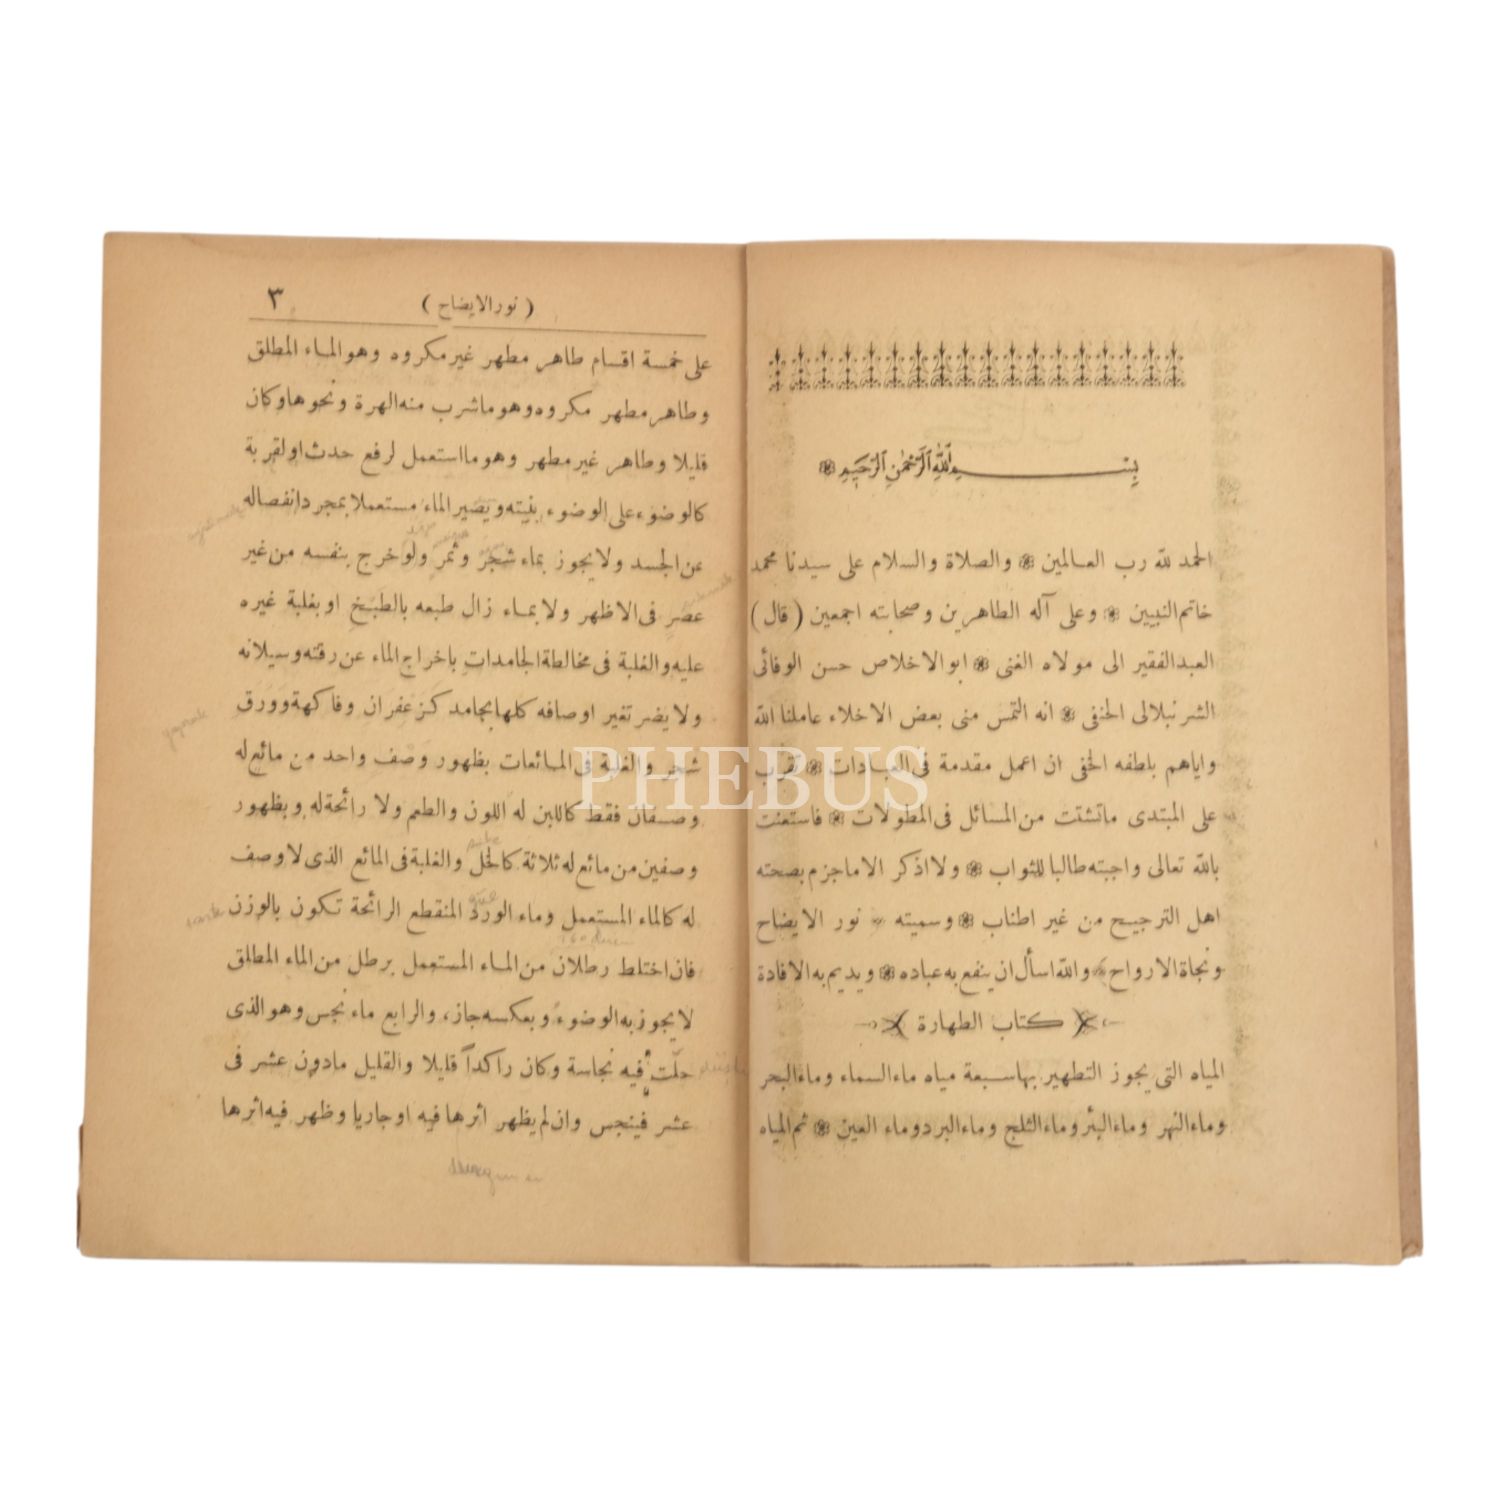 بسم الله الرحمن الرحيم
الحمد لله رب العالمين والصلاة والسلام على سيدنا محمد
خاتم النبيين وعلى آله الطاهرين وصحابته اجمعين ( قال )
العبد الفقير الى مولاه الغنى ابو الاخلاص حسن الوفائى
الشرنبلالى الحنفى انه التمس منى بعض الاخلاء عاملنا الله
واياهم بلطفه الخفى ان اعمل مقدمة فى العبادات تقرب
على المبتدى ما تشتت من المسائل فى المطولات فاستعنت
بالله تعالى واجبته طالبا للثواب ولا اذكر الا ما جزم بصحته
اهل الترجيح من غير اطناب وسميته نور الايضاح
ونجاة الارواح والله اسأل ان ينفع به عباده ويديم به الافادة
كتاب الطهارة
المياه التى يجوز التطهير بها سبعة مياه ماء السماء وماء البحر
وماء النهر وماء البئر وماء الثلج وماء البرد وماء العين ثم المياه
( نور الايضاح ) ٣
على خمسة اقسام طاهر مطهر غير مكروه وهو الماء المطلق
وطاهر مطهر مكروه وهو ما شرب منه الهرة ونحوها وكان
قليلا وطاهر غير مطهر وهو ما استعمل لرفع حدث او لقربة
كالوضوء على الوضوء بنيته ويصير الماء مستعملا بمجرد انفصاله
عن الجسد ولا يجوز بماء شجر وثمر ولو خرج بنفسه من غير
عصر فى الاظهر ولا بماء زال طبعه بالطبخ او بغلبة غيره
عليه والغلبة فى مخالطة الجامدات باخراج الماء عن رقته وسيلانه
ولا يضر تغير اوصافه كلها بجامد كزعفران وفاكهة وورق
شجر والغلبة فى المائعات بظهور وصف واحد من مائع له
وصفان فقط كاللبن له اللون والطعم ولا رائحة له وبظهور
وصفين من مائع له ثلاثة كالخل والغلبة فى المائع الذى لا وصف
له كالماء المستعمل وماء الورد المنقطع الرائحة تكون بالوزن
فان اختلط رطلان من الماء المستعمل برطل من الماء المطلق
لا يجوز به الوضوء وبعكسه جاز، والرابع ماء نجس وهو الذى
حلّت فيه نجاسة وكان راكداً قليلا والقليل مادون عشر فى
عشر فينجس وان لم يظهر اثرها فيه او جاريا وظهر فيه اثرها
PHEBUS